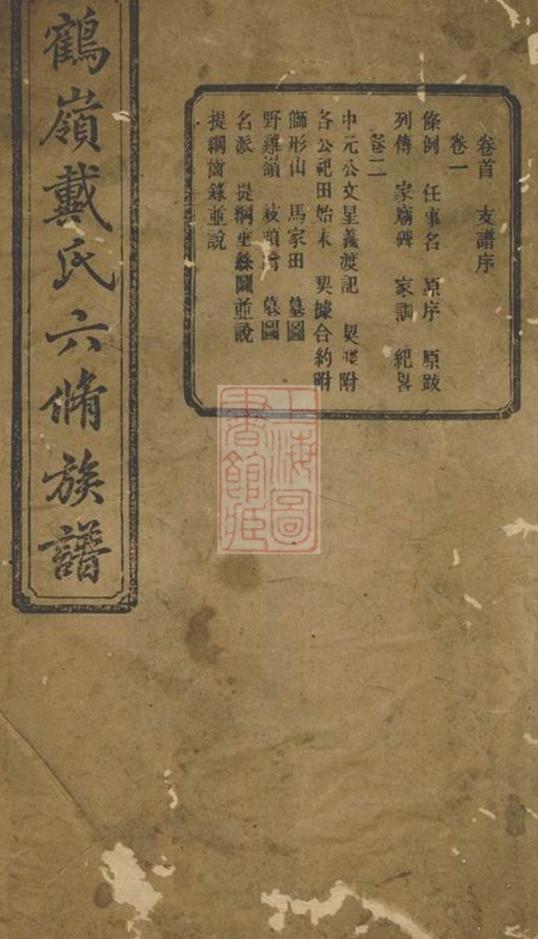 鶴嶺戴氏六脩族譜
卷首 支譜序
卷一
條例 任事名 原序 原跋
列傳 家廟碑 家訓 紀畧
卷二
中元公文星義渡記 契據附
各公祀田始末 契據合約附
獅形山 馬家田 墓圖
野雞嶺 墓圖
名派 提綱垂絲圖並說
提綱齒錄並說
上海圖
書館藏